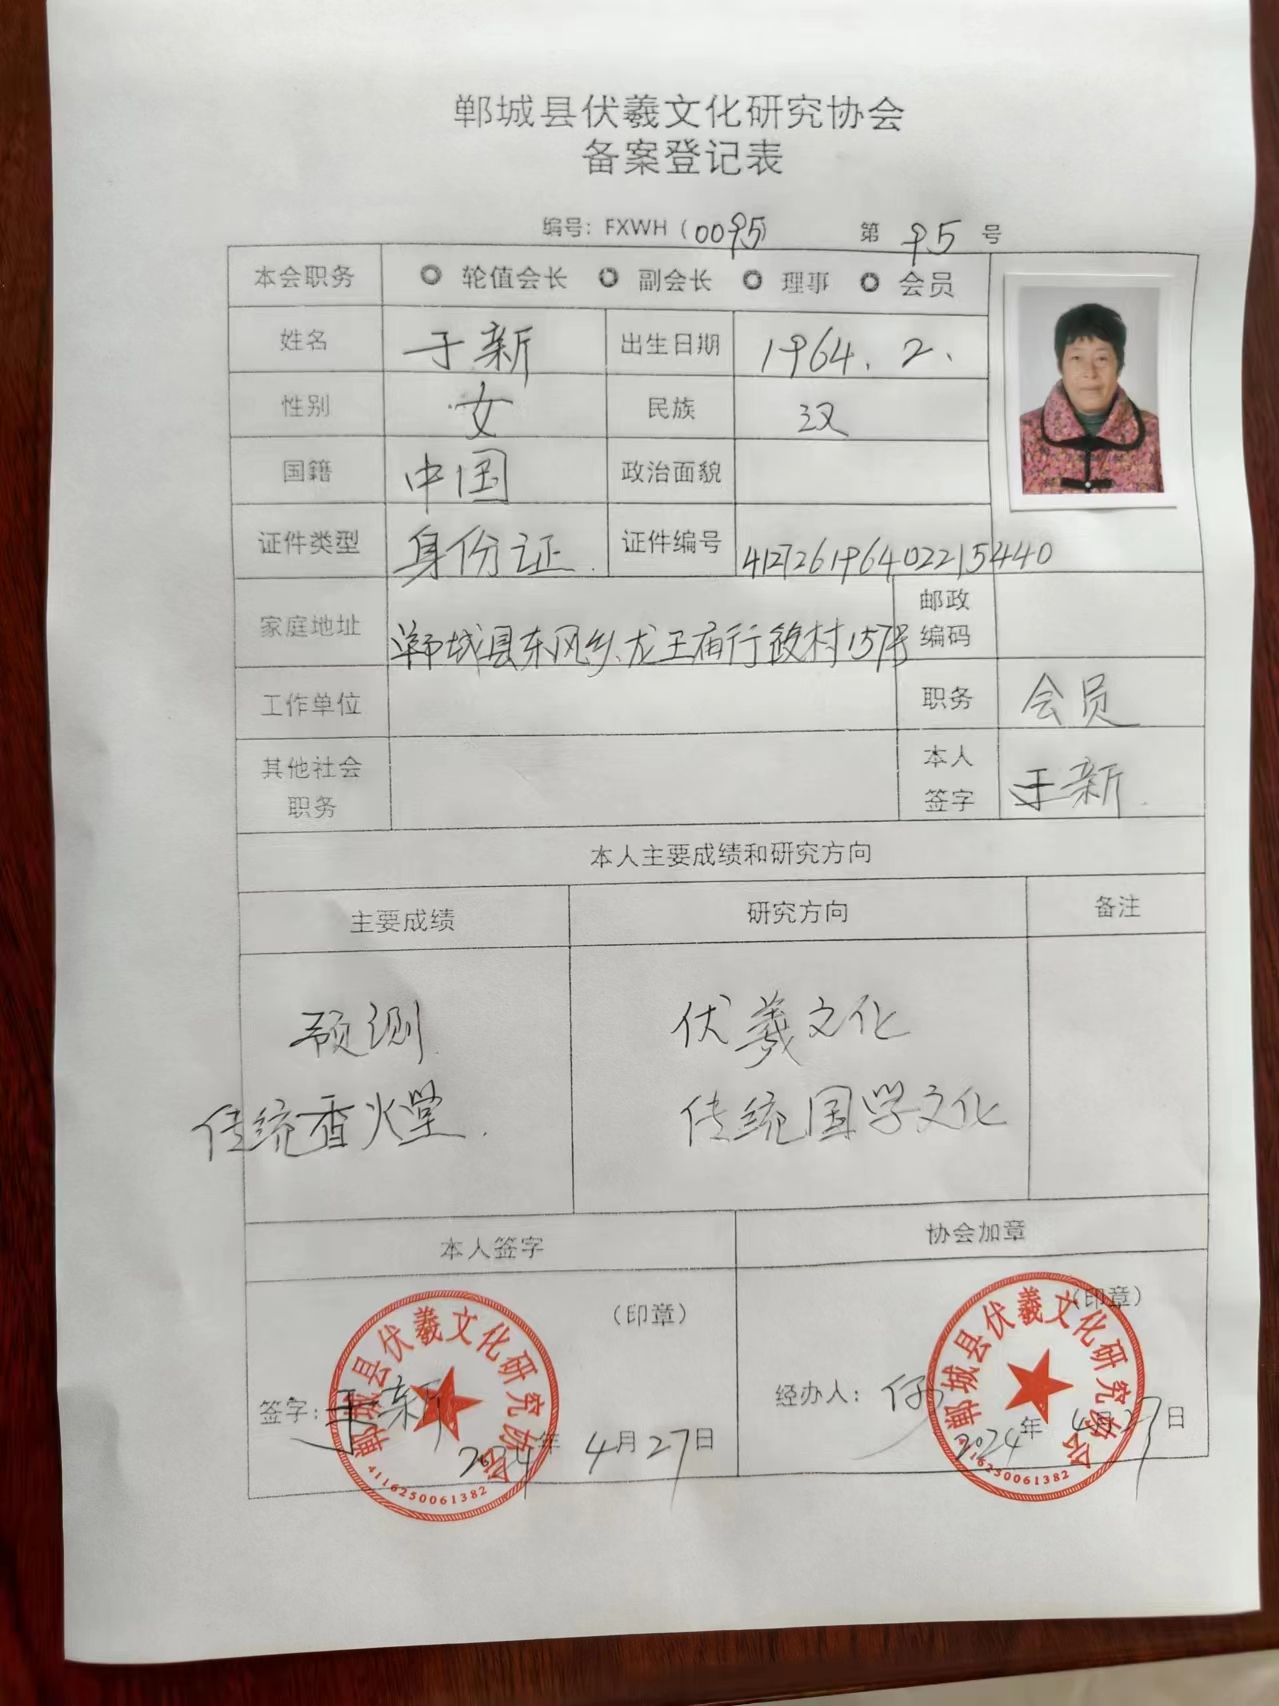 郸城县伏羲文化研究协会
备案登记表
编号：FXWH（0095） 第 95 号
本会职务 轮值会长 副会长 理事 会员
姓名 于新 出生日期 1964.2.
性别 女 民族 汉
国籍 中国 政治面貌
证件类型 身份证. 证件编号 412726196402215440
家庭地址 郸城县东风乡龙王庙行政村157号 邮政编码
工作单位 职务 会员
其他社会职务 本人签字 于新.
本人主要成绩和研究方向
主要成绩 研究方向 备注
预测 伏羲文化
传统香火堂. 传统国学文化
本人签字 协会加章
（印章） （印章）
签字：于新 经办人：
2024年 4月27日 2024年 4月27日
郸城县伏羲文化研究协会
4116250061382
郸城县伏羲文化研究协会
4116250061382